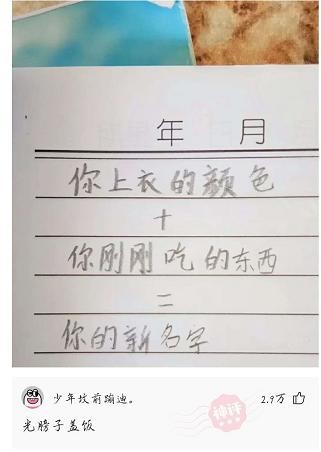 年 月
你上衣的颜色
十
你刚刚吃的东西
二
你的新名字
少年坟前蹦迪。
2.9万
神评
光膀子盖饭